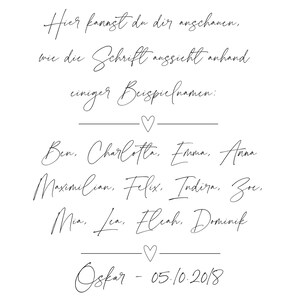 Hier kannst du dir anschauen,
wie die Schrift aussieht anhand
einiger Beispielnamen:
Ben, Charlotta, Emma, Anna
Maximilian, Felix, Indira, Zoe,
Mia, Lea, Eleah, Dominik
Oskar - 05.10.2018